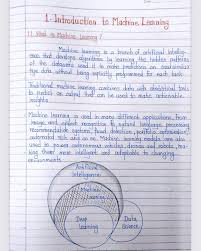 1. Introduction to Machine Learning
1.1 What is Machine Learning ?
Machine learning is a branch of artificial intellige-
nce that develops algorithms by learning the hidden patterns
of the datasets used it to make predictions on new similar
type data without being explicitly programmed for each task.
Traditional machine learning combines data with statistical tools
to predict an output that can be used to make actionable
insights.
Machine learning is used in many different applications, from
image and speech recognition to natural language processing,
recommendation systems, fraud detection, portfolio optimization,
automated task and so on. Machine learning models are also
used to power autonomous vehicles, drones and robots, mak-
ing them more intelligent and adaptable to changing
environments.
Artificial
Intelligence
Machine
Learning
Deep
Learning
Data
Science